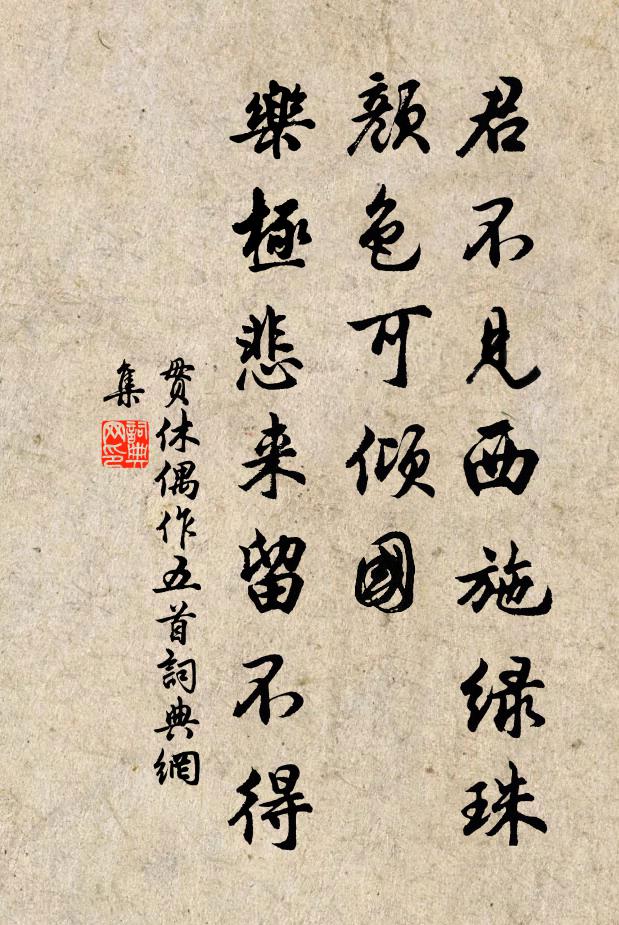 君不見西施緑珠
顏色可傾國
樂極悲来留不得
貫休偶作五首詞典網
集
詞典
网印